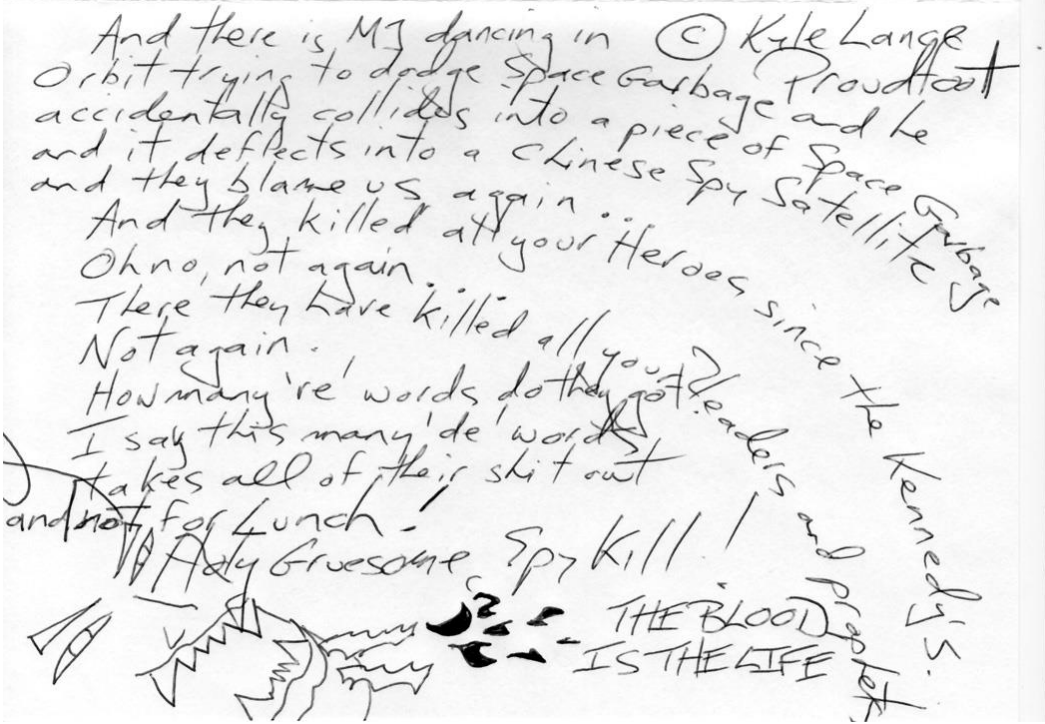 And there is MJ dancing in © Kyle Lange
Orbit trying to dodge Space Garbage Proudfoot
accidentally collides into a piece of Space Garbage
and it deflects into a Chinese Spy Satellite and he
and they blame us again...
And they killed all your Heroes since the Kennedy's.
Oh no, not again...
There they have killed all your leaders and prophets
Not again.
How many 're' words do they got?
I say this many 'de' words
takes all of their shit out
and not for Lunch!
Holy Gruesome Spy Kill!
THE BLOOD
IS THE LIFE